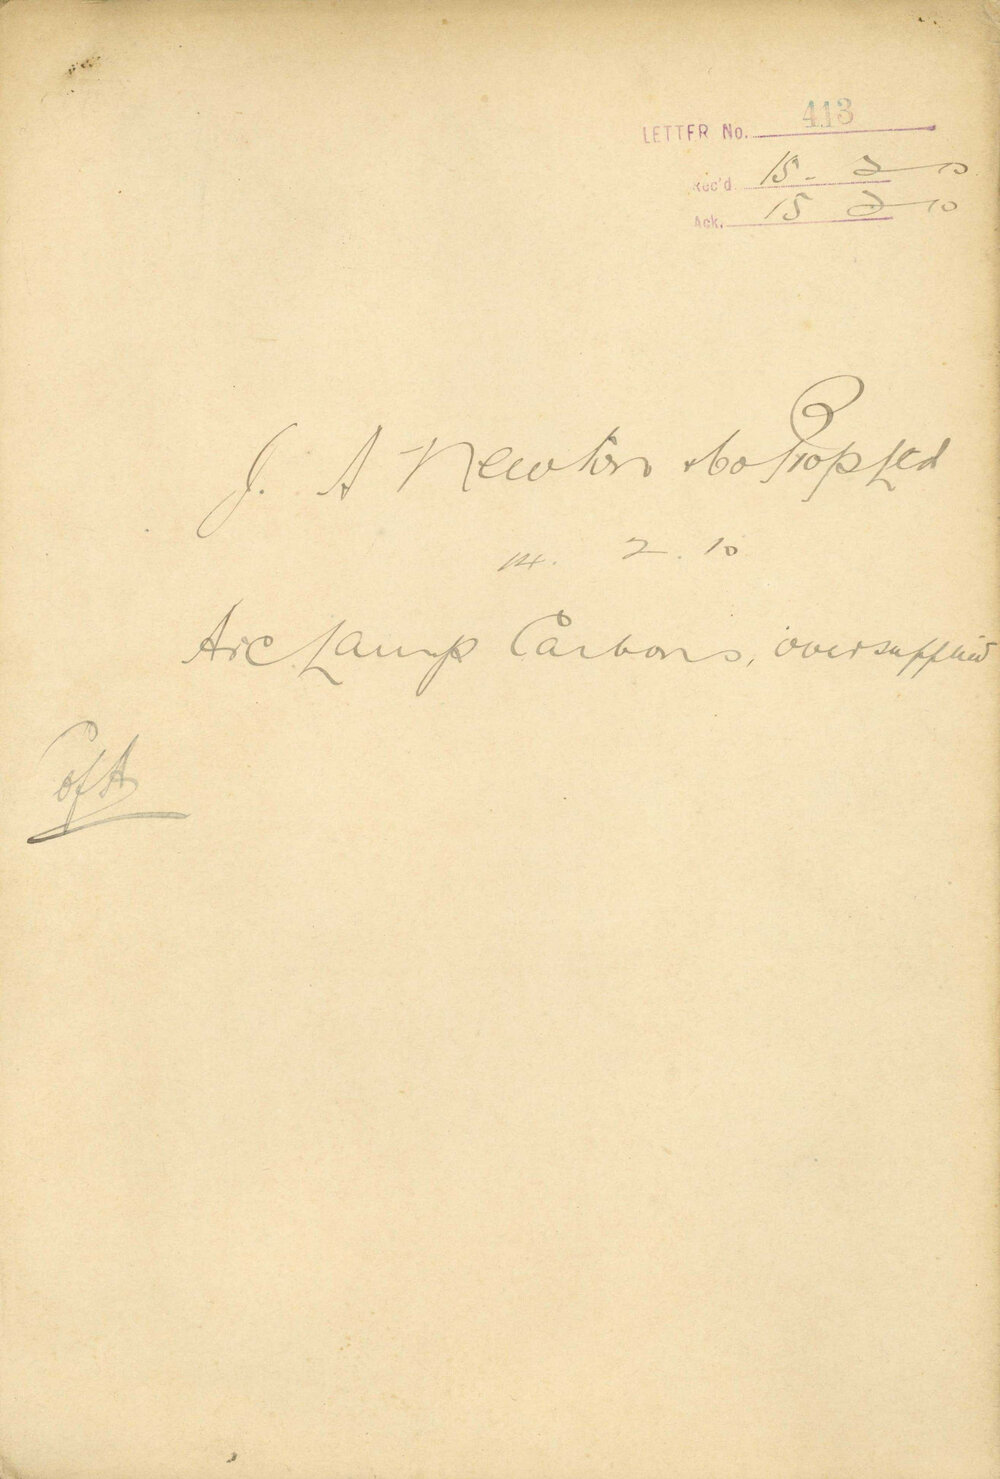 LETTER No. 413
Rec'd 15 - 2 10
Ack. 15 2 10
J. A Newton & Co Prop Ltd
14. 2. 10
Arc Lamp Carbons, oversupplied
C of A